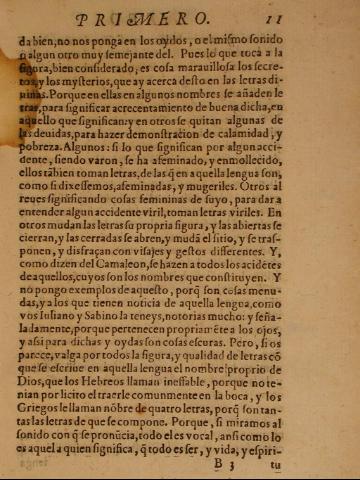 PRIMERO. 11
da bien, no nos ponga en los oydos, o el mismo sonido
o algun otro muy semejante del. Pues lo que toca a la
figura, bien considerado, es cosa maravillosa los secre-
tos, y los mysterios, que ay acerca desto en las letras di-
uinas. Porque en ellas en algunos nombres se añaden le
tras, para significar acrecentamiento de buena dicha, en
aquello que significan: y en otros se quitan algunas de
las deuidas, para hazer demonstracion de calamidad, y
pobreza. Algunos: si lo que significan por algun acci-
dente, siendo varon, se ha afeminado, y enmollecido,
ellos tãbien toman letras, de las q̃ en aquella lengua son,
como si dixessemos, afeminadas, y mugeriles. Otros al
reues significando cosas femininas de suyo, para dar a
entender algun accidente viril, toman letras viriles. En
otros mudan las letras su propria figura, y las abiertas se
cierran, y las cerradas se abren, y mudã el sitio, y se tras-
ponen, y disfraçan con visajes y gestos differentes. Y,
como dizen del Camaleon, se hazen a todos los acidẽtes
de aquellos, cuyos son los nombres que constituyen. Y
no pongo exemplos de aquesto, porq̃ son cosas menu-
das, y a los que tienen noticia de aquella lengua, como
vos Iuliano y Sabino la teneys, notorias mucho: y seña-
ladamente, porque pertenecen propriamẽte a los ojos,
y assi para dichas y oydas son cosas escuras. Pero, si os
parece, valga por todos la figura, y qualidad de letras cõ
que se escriue en aquella lengua el nombre proprio de
Dios, que los Hebreos llaman ineffable, porque no te-
nian por licito el traerle comunmente en la boca, y los
Griegos le llaman nõbre de quatro letras, porq̃ son tan-
tas las letras de que se compone. Porque, si miramos al
sonido con q̃ se pronũcia, todo el es vocal, ansi como lo
es aquel a quien significa, q̃ todo es ser, y vida, y espiri-
B 3 tu